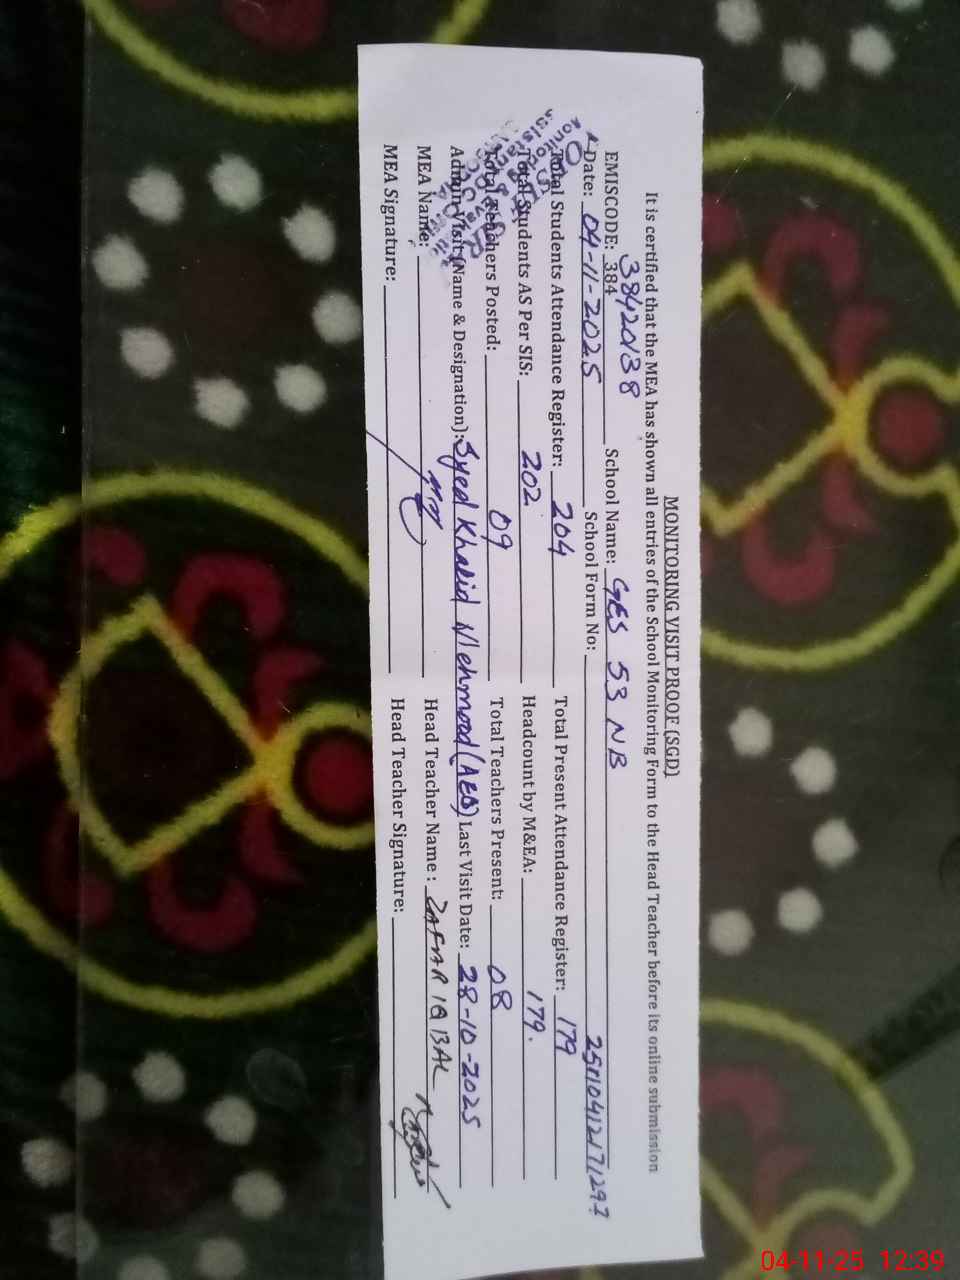 MONITORING VISIT PROOF (SGD)
It is certified that the MEA has shown all entries of the School Monitoring Form to the Head Teacher before its online submission
EMISCODE: 384 38420138 School Name: GES 53 NB
Date: 04-11-2025 School Form No:
Total Students Attendance Register: 204 Total Present Attendance Register: 179
Total Students AS Per SIS: 202 Headcount by M&EA: 179.
Total Teachers Posted: 09 Total Teachers Present: 08
Admin Visit (Name & Designation): Syed Khalid Mehmood (AEO) Last Visit Date: 28-10-2025
MEA Name: Head Teacher Name: ZAFAR IQBAL
MEA Signature: Head Teacher Signature:
04-11-25 12:39